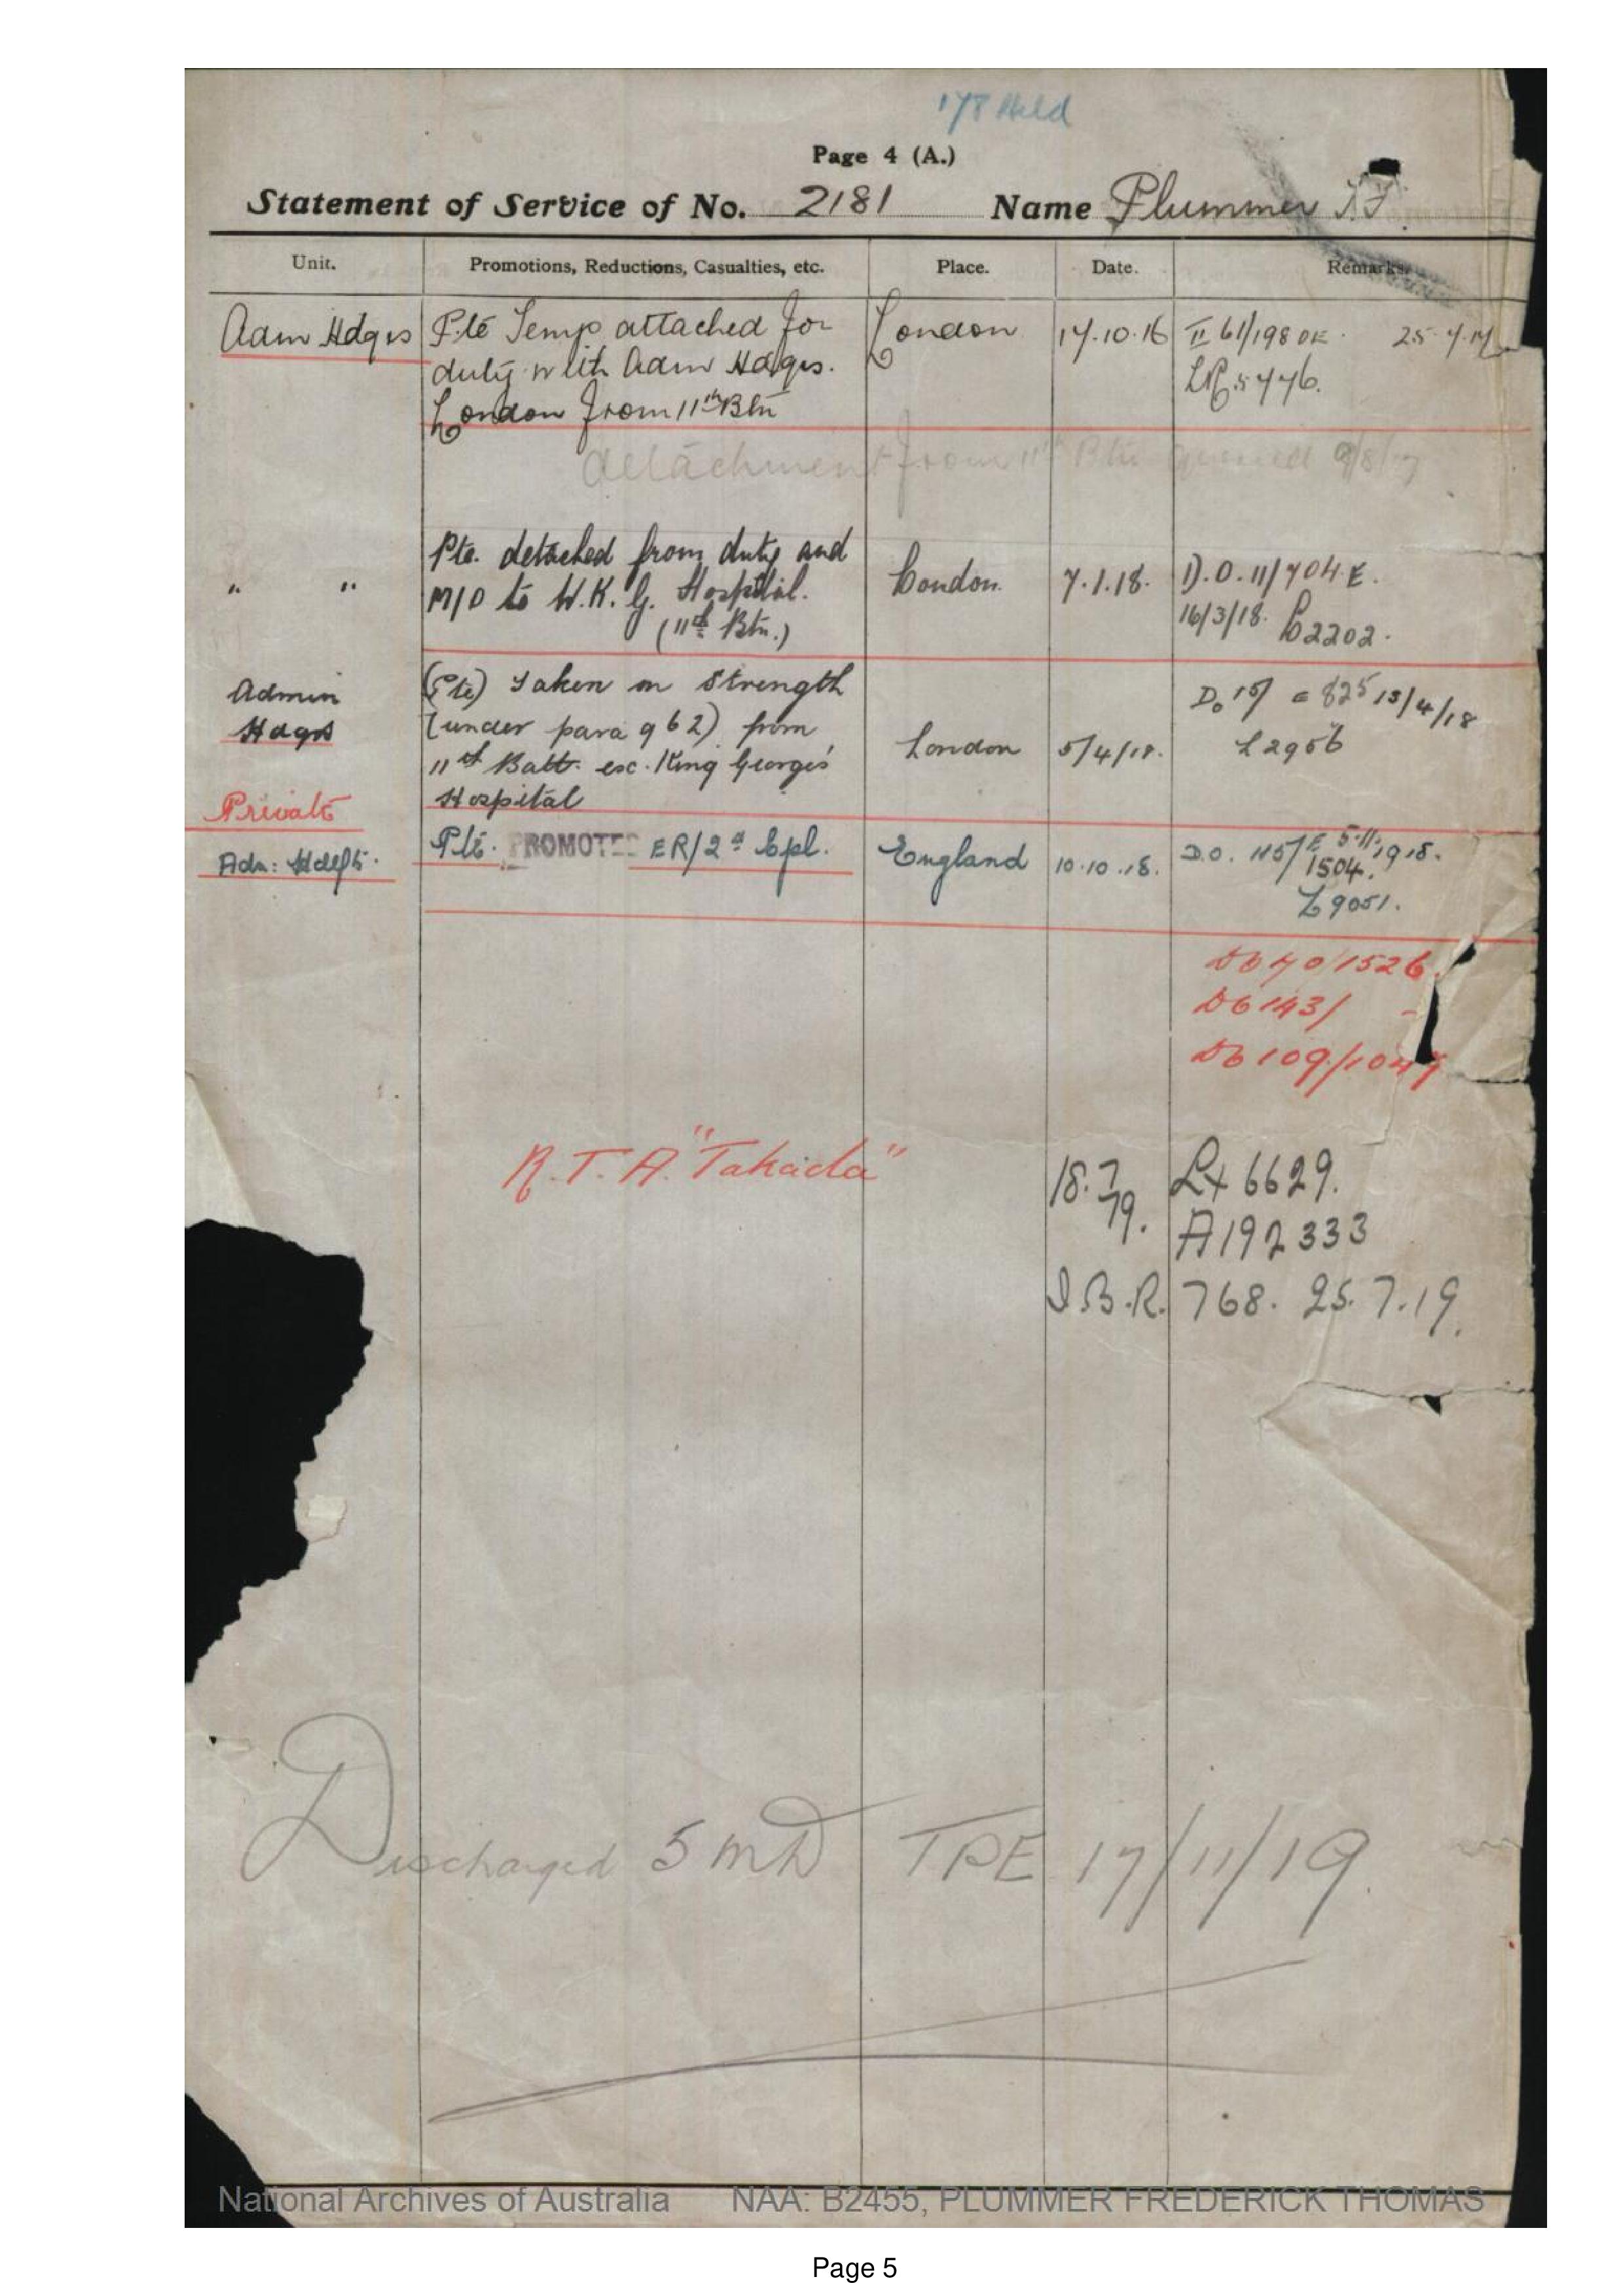 178 Held
Page 4 (A.)
Statement of Service of No. 2181 Name Plummer
Unit. Promotions, Reductions, Casualties, etc. Place. Date. Remarks.
Adm Hdqrs Pte Temp attached for London 17.10.16 II 61/198 DK. 25.7.17
duty with Adm Hdqrs. 5776.
London from 11th Btn
detachment from 11th Btn 9/8/17
Pte. detached from duty and
" " M/O to W.K.G. Hospital. London. 7.1.18. D.O. 11/704 E.
(11th Btn.) 16/3/18. L2202.
Admin (Pte) Taken on Strength D.O 15/ 825 13/4/18
Hdqrs (under para 962) from London 5/4/18. L2956
11th Batt. esc. King George's
Private Hospital
Adm: Hdqrs. Pte. PROMOTED ER/2nd Cpl. England 10.10.18. D.O. 115/E 5.11.1918.
1504.
L9051.
DO 70/1526
DO 143/ -
DO 109/1047
R.T.A. "Takada" 18.7.19. Lx 6629.
A192333
D.B.R. 768. 25.7.19.
Discharged 5 MD TPE 17/11/19.
National Archives of Australia NAA: B2455, PLUMMER FREDERICK THOMAS
Page 5